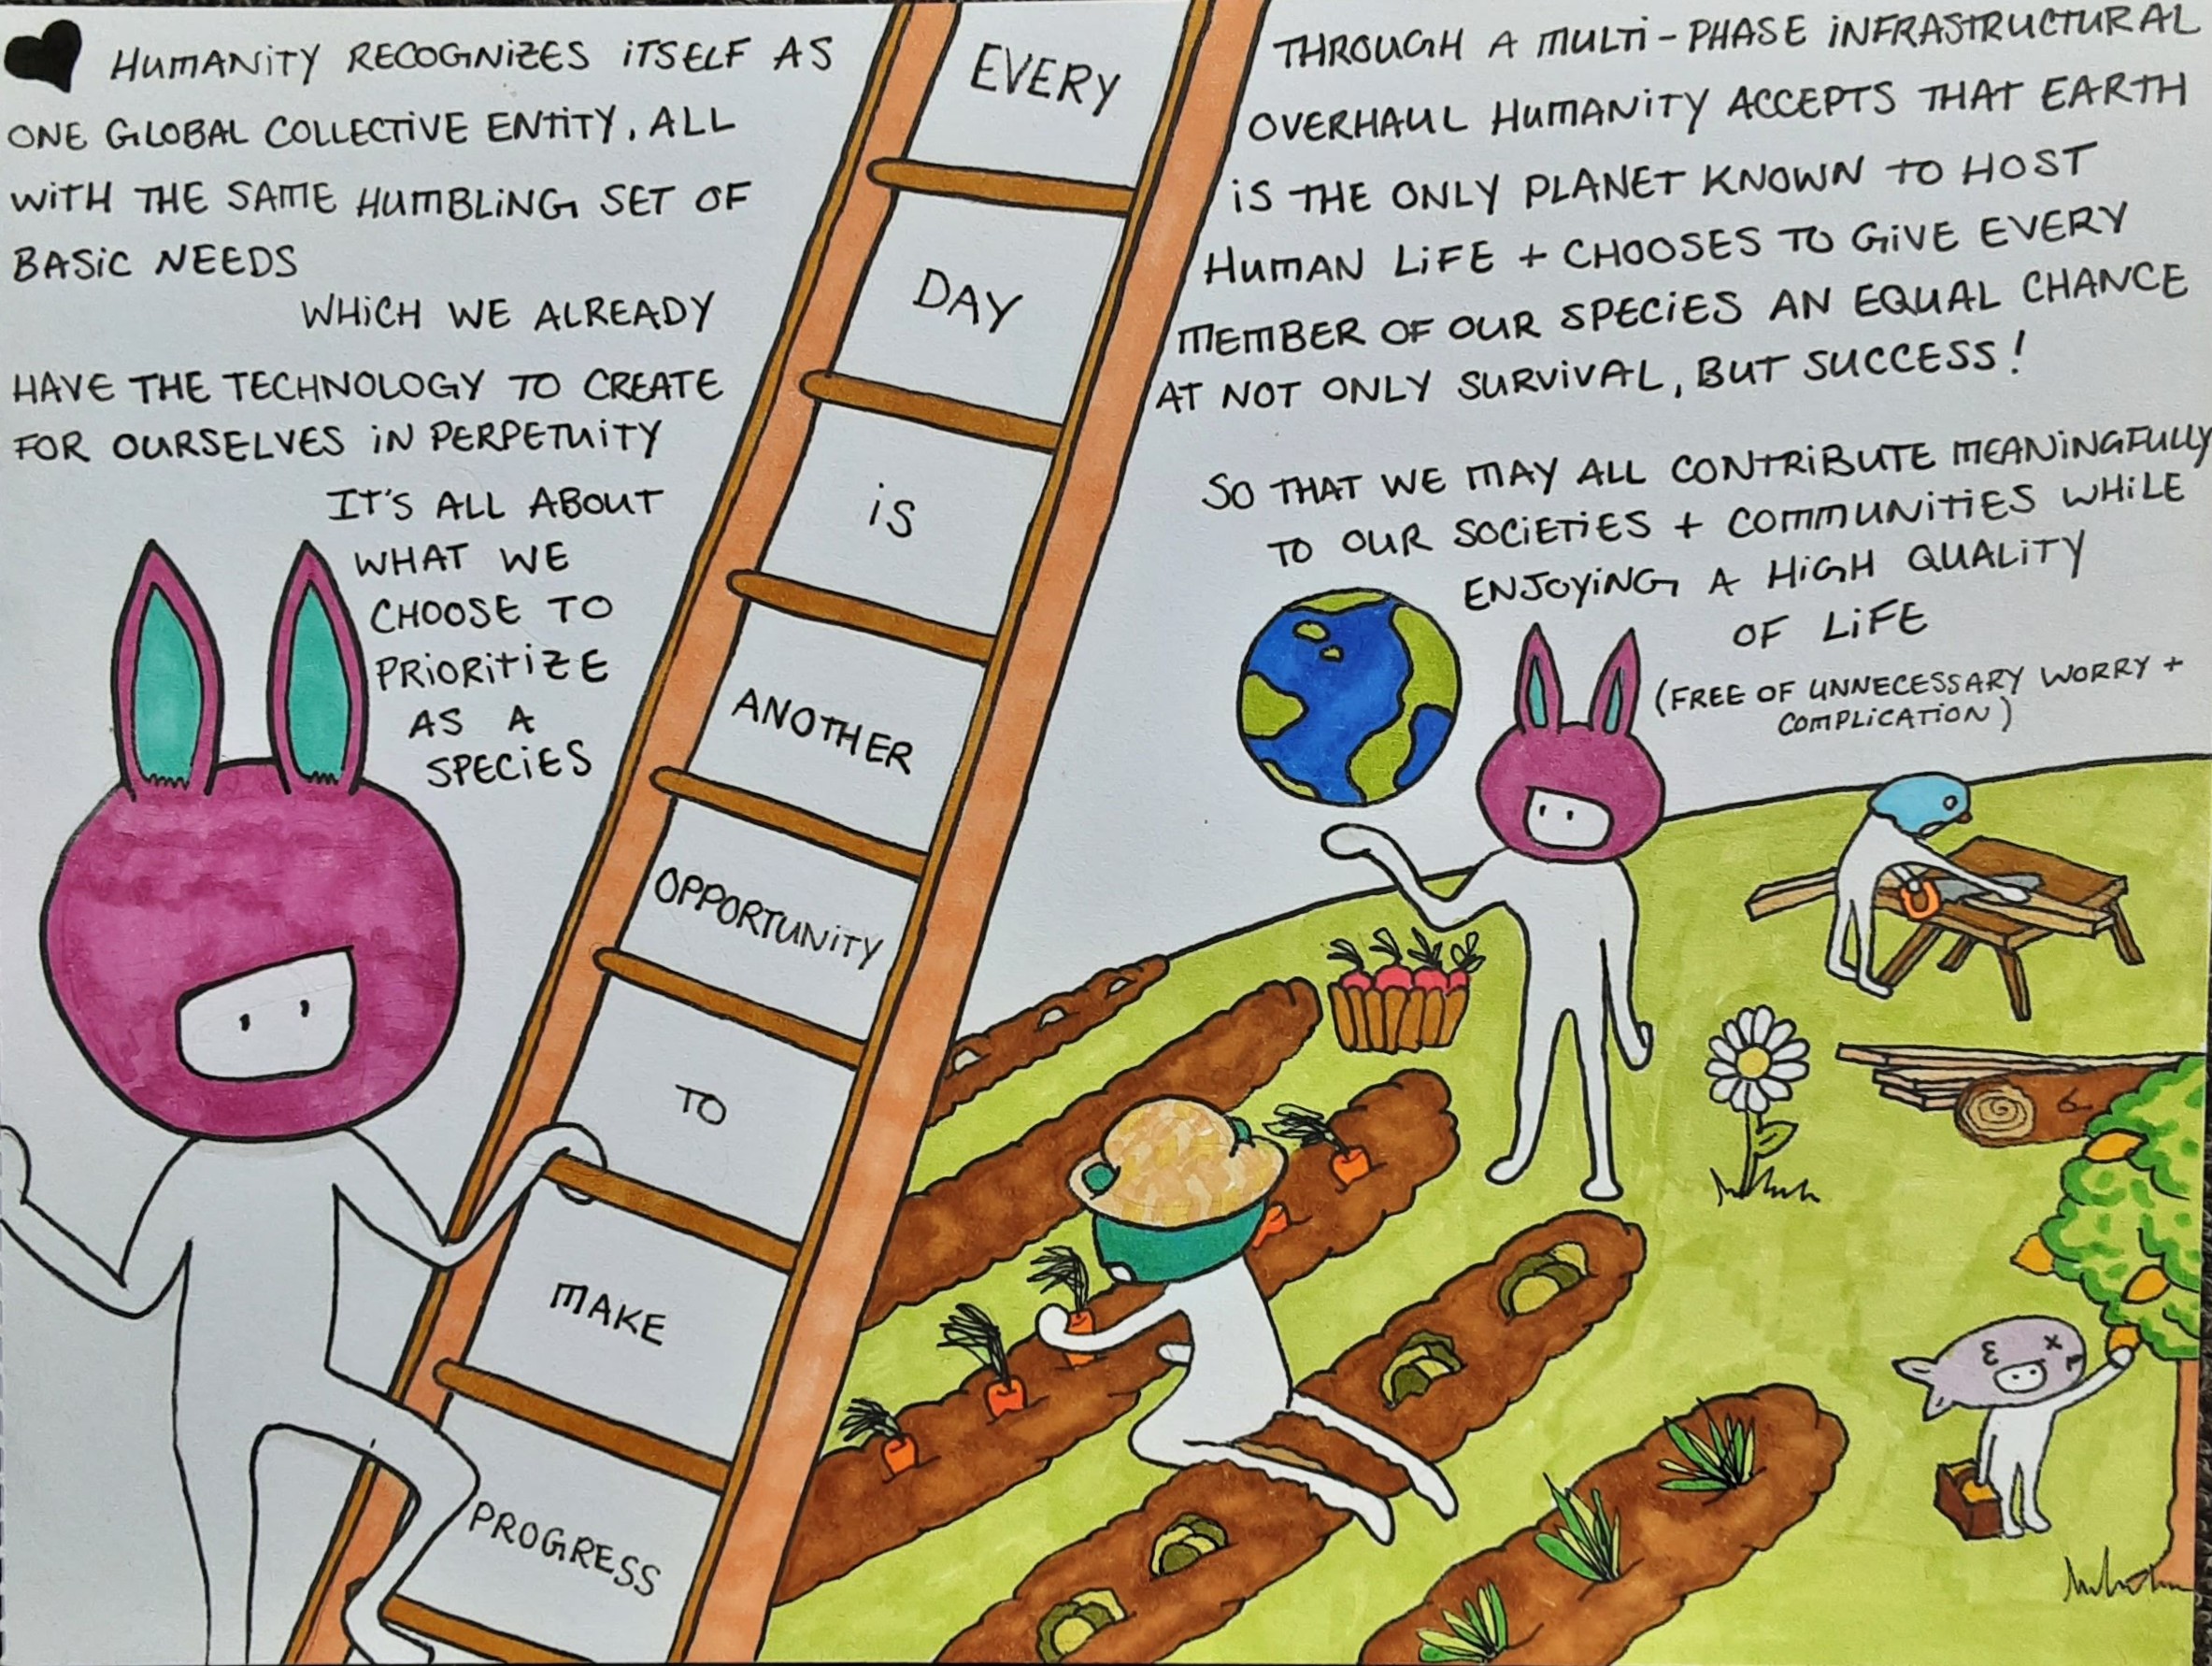 HUMANITY RECOGNIZES ITSELF AS
ONE GLOBAL COLLECTIVE ENTITY, ALL
WITH THE SAME HUMBLING SET OF
BASIC NEEDS
WHICH WE ALREADY
HAVE THE TECHNOLOGY TO CREATE
FOR OURSELVES IN PERPETUITY
IT'S ALL ABOUT
WHAT WE
CHOOSE TO
PRIORITIZE
AS A
SPECIES
EVERY
DAY
IS
ANOTHER
OPPORTUNITY
TO
MAKE
PROGRESS
THROUGH A MULTI-PHASE INFRASTRUCTURAL
OVERHAUL HUMANITY ACCEPTS THAT EARTH
IS THE ONLY PLANET KNOWN TO HOST
HUMAN LIFE + CHOOSES TO GIVE EVERY
MEMBER OF OUR SPECIES AN EQUAL CHANCE
AT NOT ONLY SURVIVAL, BUT SUCCESS!
SO THAT WE MAY ALL CONTRIBUTE MEANINGFULLY
TO OUR SOCIETIES + COMMUNITIES WHILE
ENJOYING A HIGH QUALITY
OF LIFE
(FREE OF UNNECESSARY WORRY +
COMPLICATION)